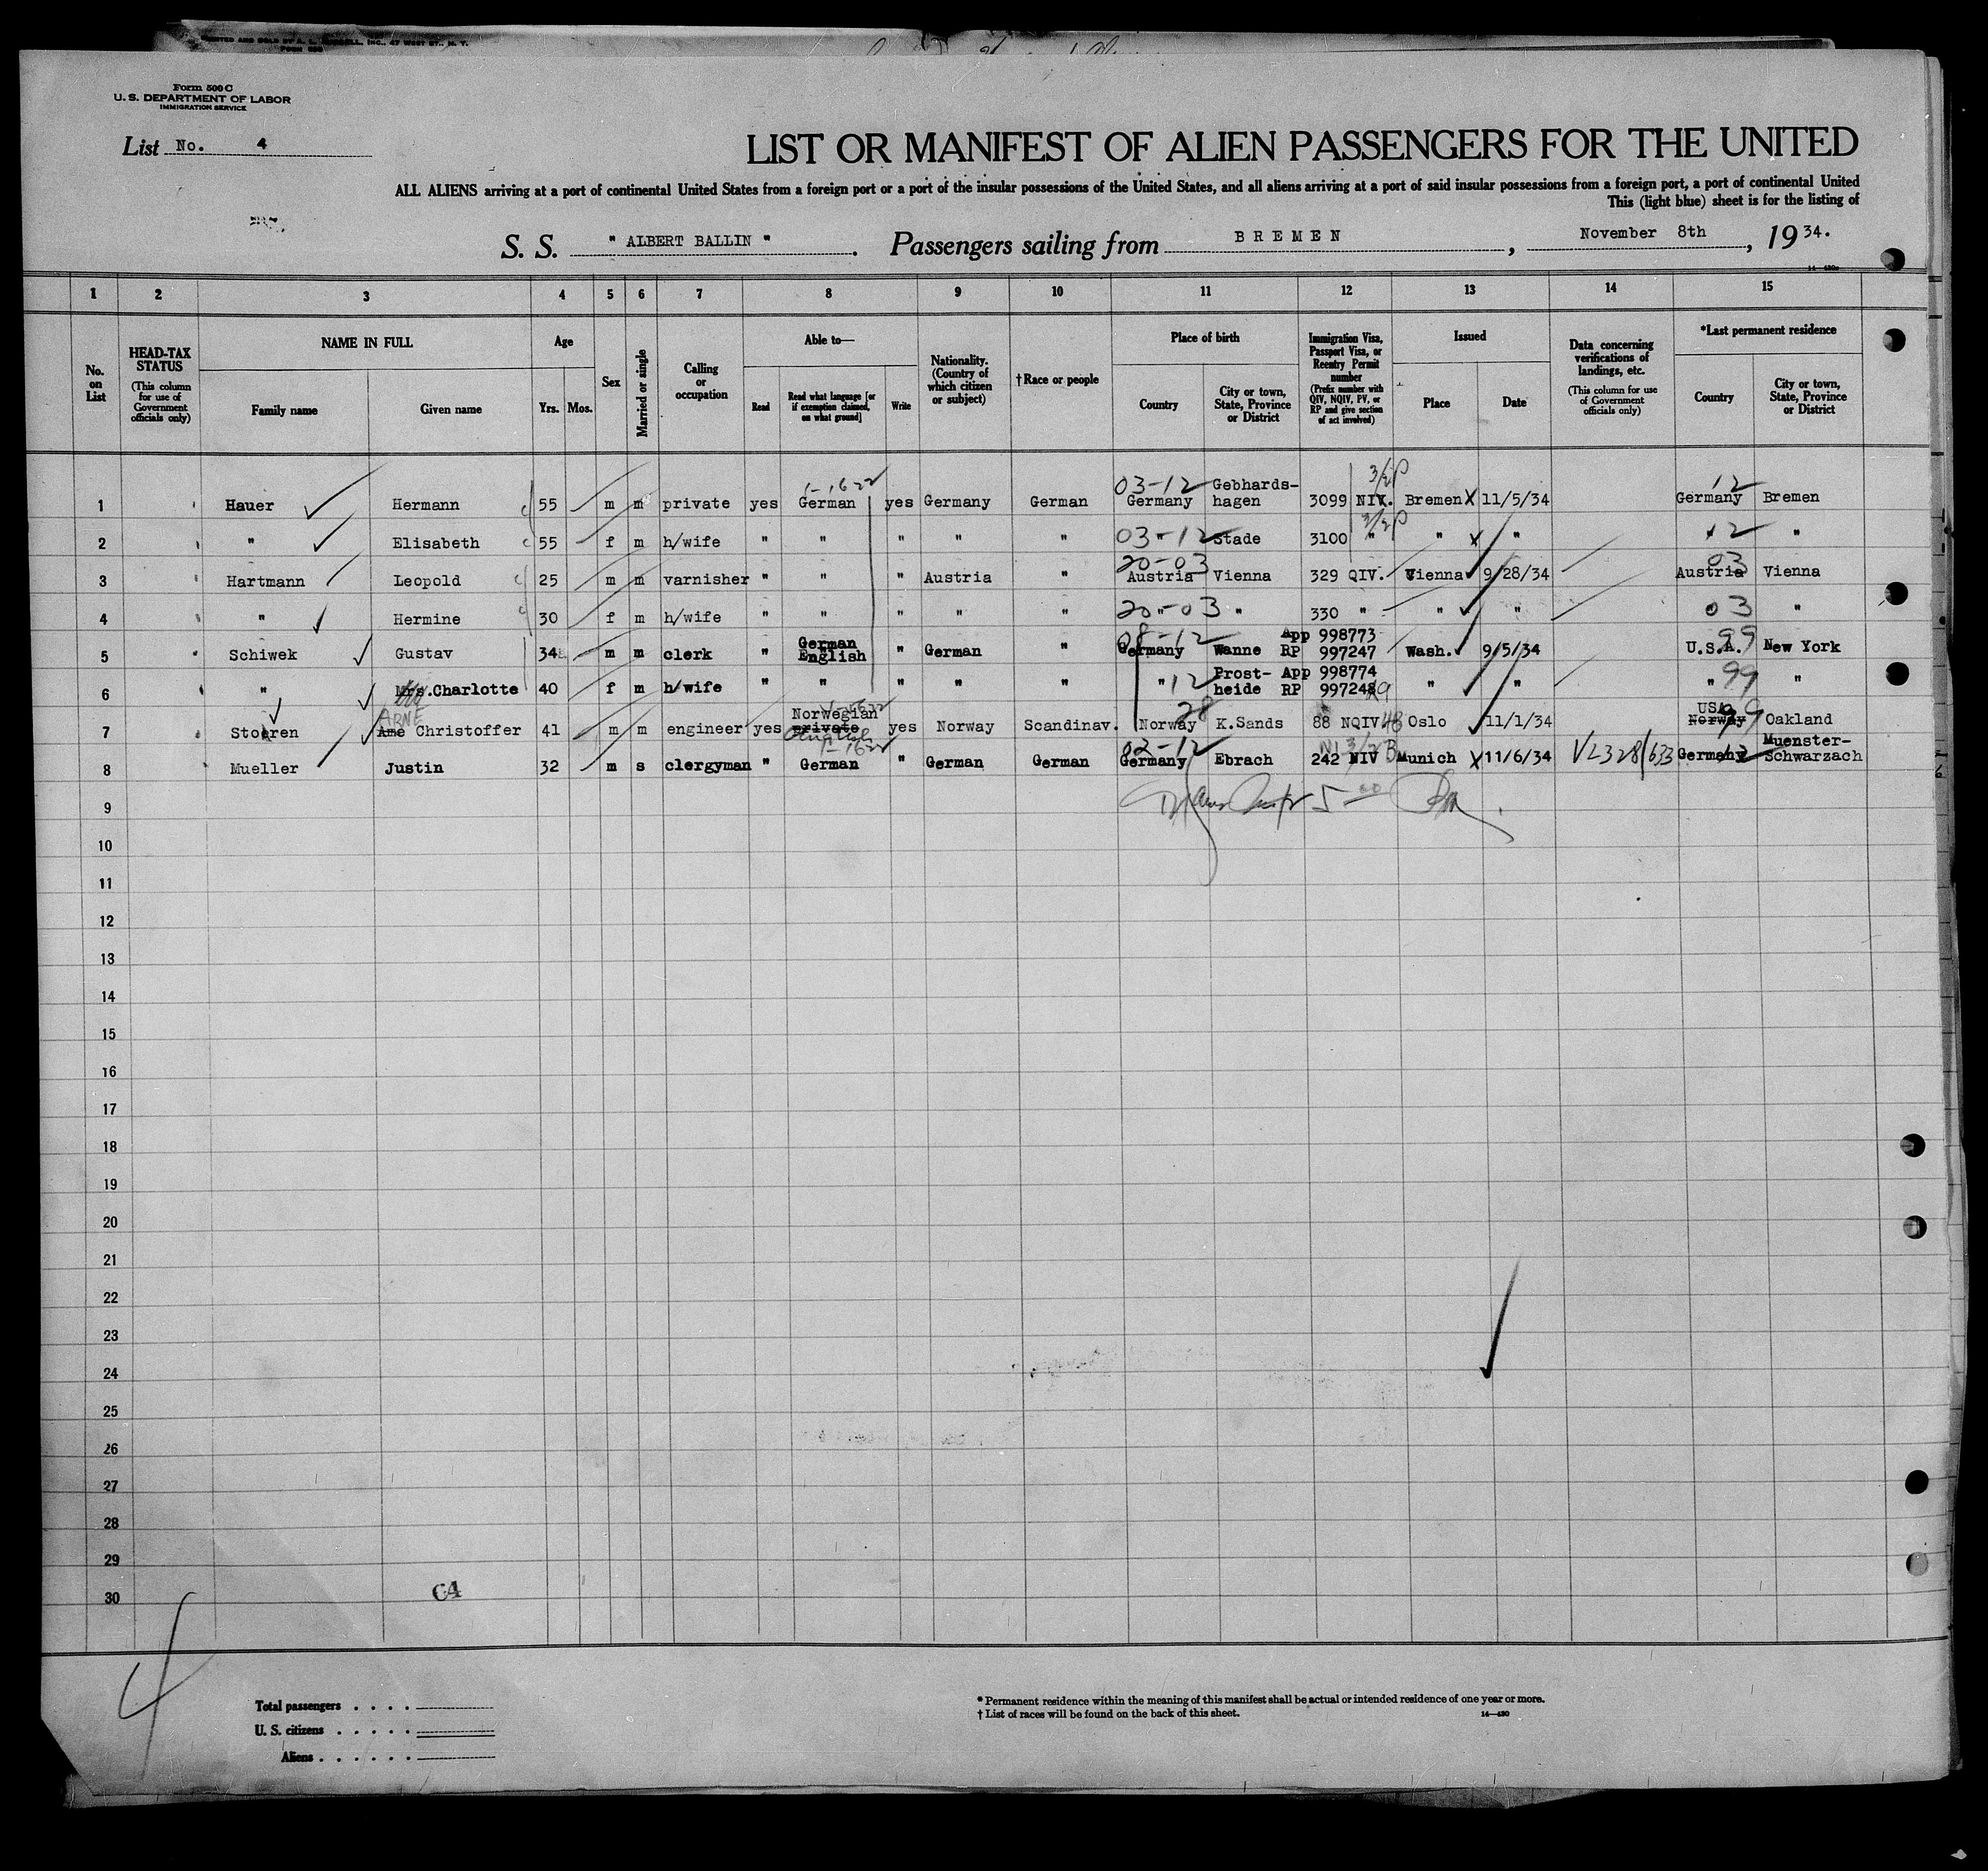 PRINTED AND SOLD BY A. L. RUSSELL, INC., 47 WEST ST., N. Y.
Form 500 C
U. S. DEPARTMENT OF LABOR
IMMIGRATION SERVICE
List No. 4
LIST OR MANIFEST OF ALIEN PASSENGERS FOR THE UNITED
ALL ALIENS arriving at a port of continental United States from a foreign port or a port of the insular possessions of the United States, and all aliens arriving at a port of said insular possessions from a foreign port, a port of continental United
This (light blue) sheet is for the listing of
S. S. " ALBERT BALLIN ". Passengers sailing from BREMEN, November 8th, 1934.
14—430
1 2 3 4 5 6 7 8 9 10 11 12 13 14 15
No. on List
HEAD-TAX STATUS
(This column for use of Government officials only)
NAME IN FULL
Family name Given name
Age
Yrs. Mos.
Sex
Married or single
Calling or occupation
Able to—
Read
Read what language [or if exemption claimed, on what ground]
Write
Nationality. (Country of which citizen or subject)
†Race or people
Place of birth
Country
City or town, State, Province or District
Immigration Visa, Passport Visa, or Reentry Permit number
(Prefix number with QIV, NQIV, PV, or RP and give section of act involved)
Issued
Place Date
Data concerning verifications of landings, etc.
(This column for use of Government officials only)
*Last permanent residence
Country
City or town, State, Province or District
03-12 Gebhards- 3/2P 12
1 Hauer Hermann 55 m m private yes German yes Germany German Germany hagen 3099 NIV. Bremen X 11/5/34 Germany Bremen
2 " Elisabeth 55 f m h/wife " " " " " 03 " 12 Stade 3100 " 3/2P " X " 12 "
20-03 03
3 Hartmann Leopold 25 m m varnisher " " " Austria " Austria Vienna 329 QIV. Vienna 9/28/34 Austria Vienna
4 " Hermine 30 f m h/wife " " " " " 20 " 03 " 330 " " " 03 "
German 08-12 App 998773 99
5 Schiwek Gustav 34 m m clerk " English " German " Germany Wanne RP 997247 Wash. 9/5/34 U.S.A. New York
Prost- App 998774
6 " Mrs. Charlotte 40 f m h/wife " " " " " " 12 heide RP 997248 " " " 99 "
ARNE Norwegian 28 USA 99
7 Stoeren Ame Christoffer 41 m m engineer yes private yes Norway Scandinav. Norway K.Sands 88 NQIV 4B Oslo 11/1/34 Norway Oakland
English 02-12 Muenster-
8 Mueller Justin 32 m s clergyman " German " German German Germany Ebrach 242 NIV Munich X 11/6/34 VL328/633 Germany 12 Schwarzach
9
10
11
12
13
14
15
16
17
18
19
20
21
22
23
24
25
26
27
28
29
30
C4
4
Total passengers . . . .
U. S. citizens . . . . .
Aliens . . . . . .
* Permanent residence within the meaning of this manifest shall be actual or intended residence of one year or more.
† List of races will be found on the back of this sheet.
14—430